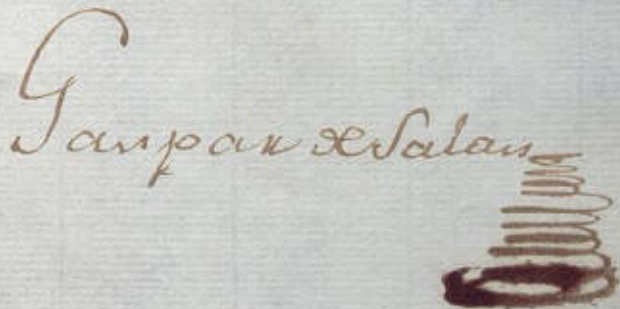 Gaspar de Salas